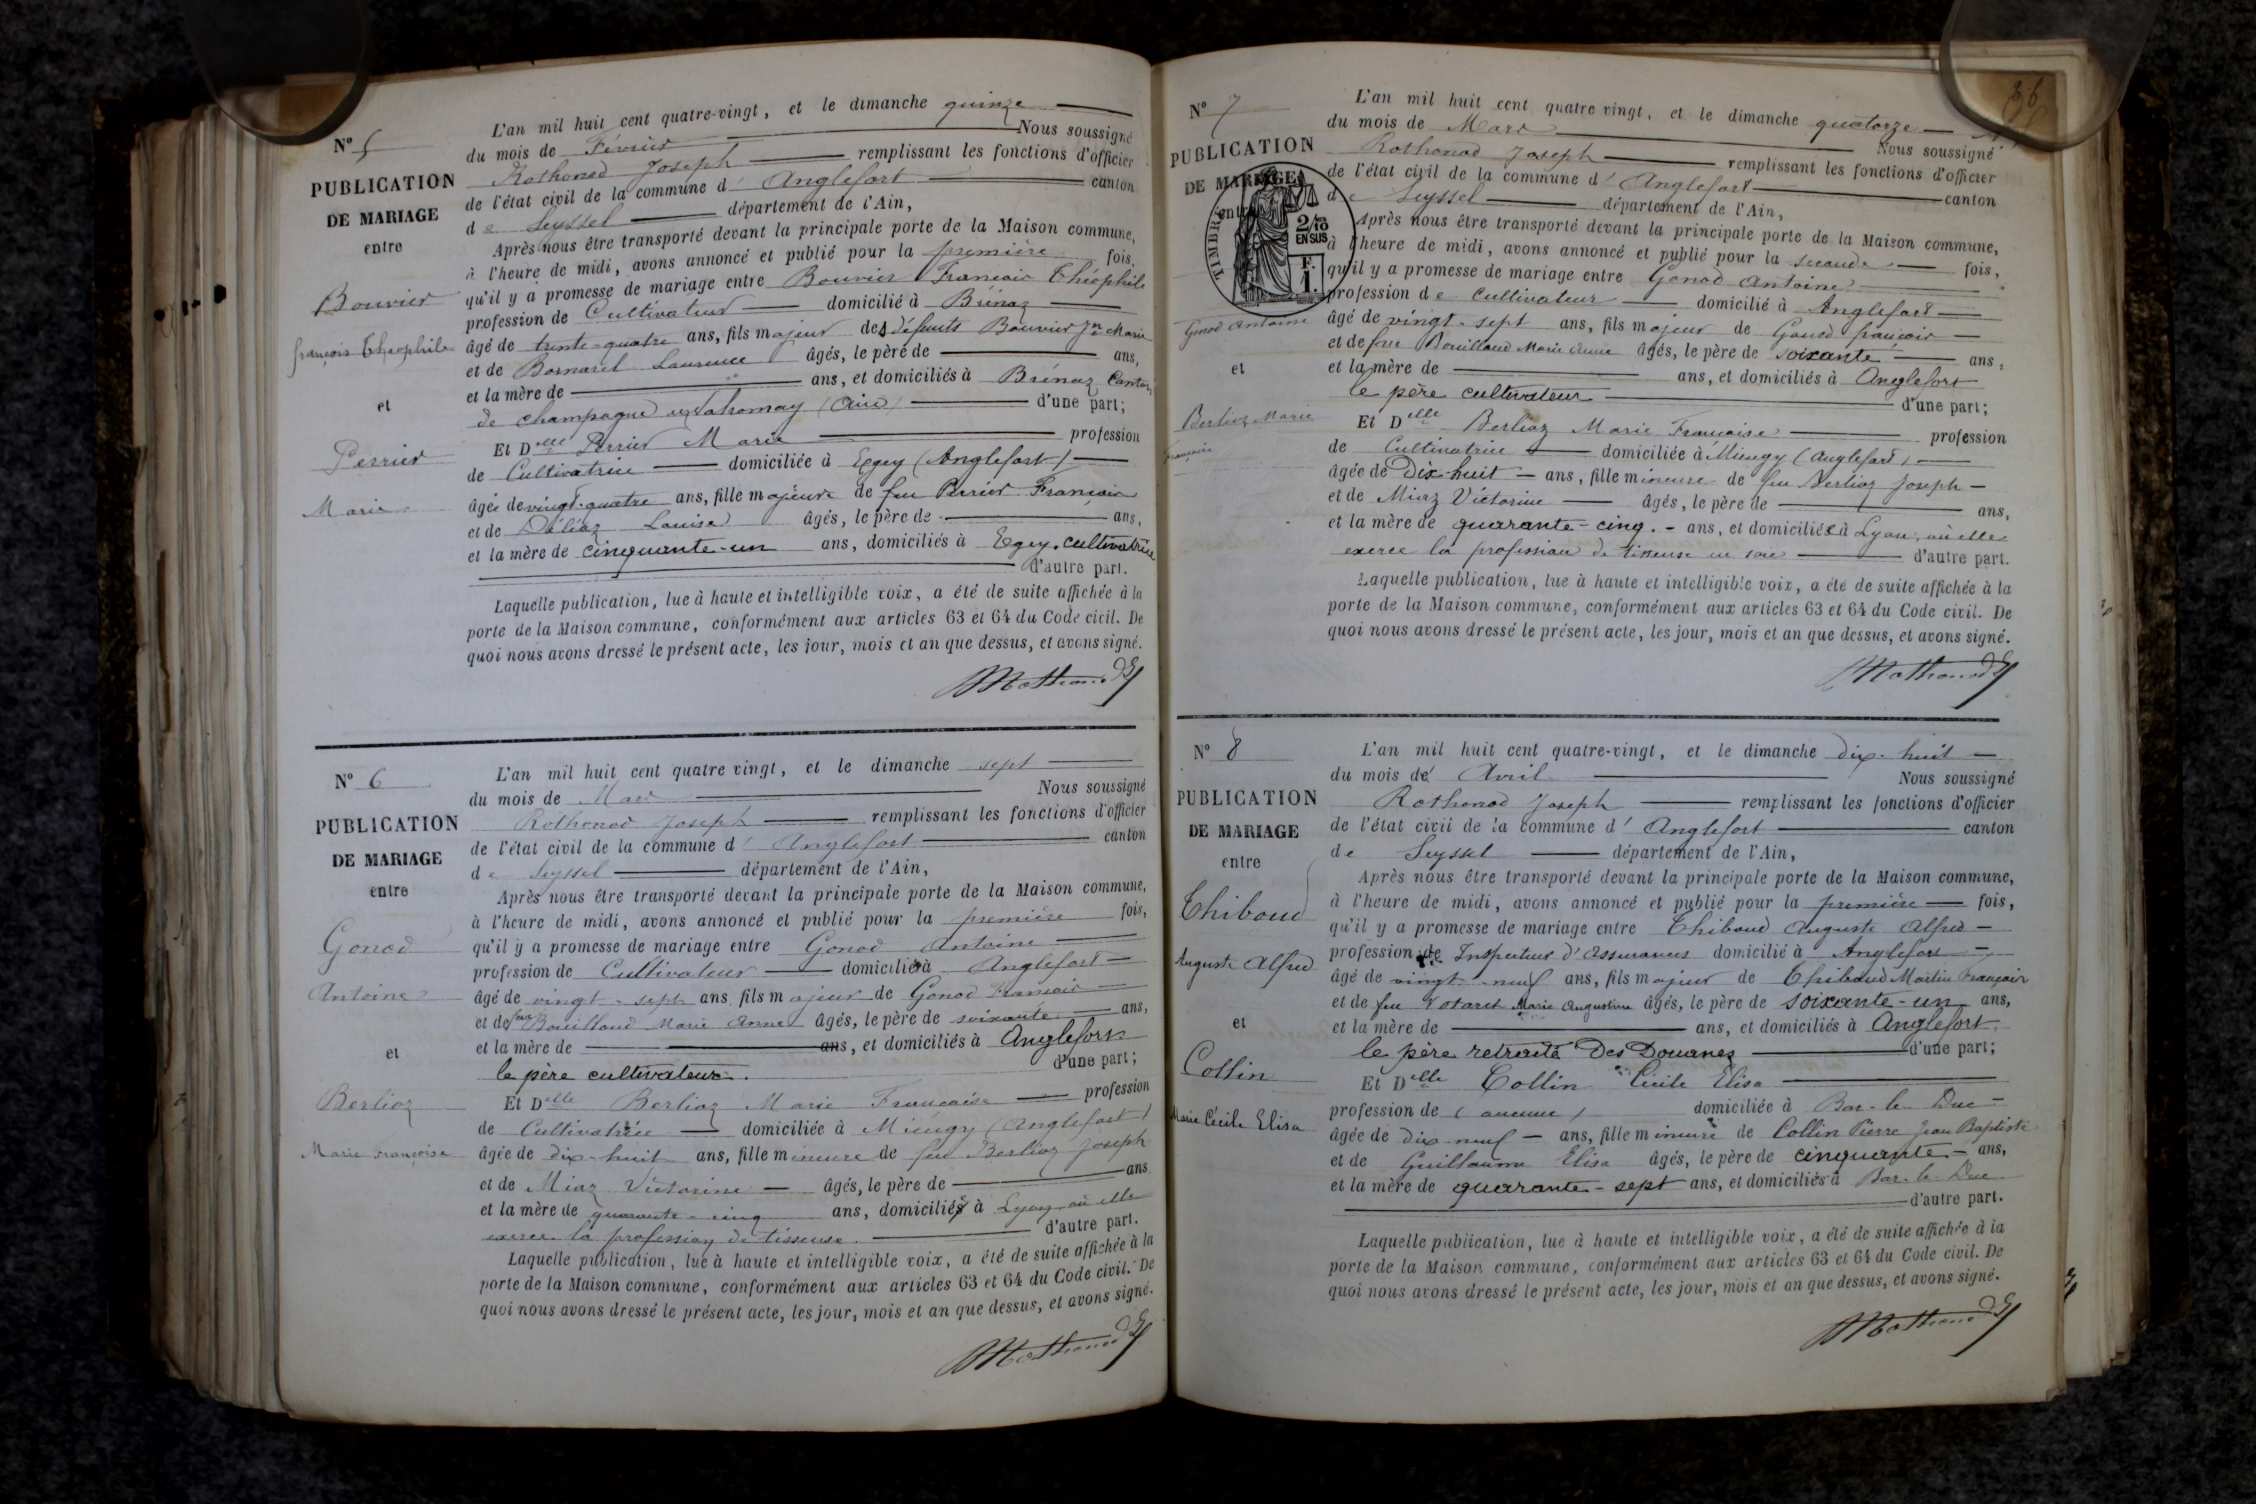 N° 5
PUBLICATION
DE MARIAGE
entre
Bouvier
françois Théophile
et
Perrier
Marie
L'an mil huit cent quatre-vingt, et le dimanche quinze
du mois de Février Nous soussigné
Rothonod Joseph remplissant les fonctions d'officier
de l'état civil de la commune d' Anglefort canton
de Seyssel département de l'Ain,
Après nous être transporté devant la principale porte de la Maison commune,
à l'heure de midi, avons annoncé et publié pour la première fois,
qu'il y a promesse de mariage entre Bouvier Francois Théophile
profession de Cultivateur domicilié à Brénaz
âgé de trente-quatre ans, fils majeur des défunts Bouvier Jn Marie
et de Bornarel Laurence âgés, le père de ans,
et la mère de ans, et domiciliés à Brénaz Canton
de champagne en (Ain) d'une part;
Et Delle Perrier Marie profession
de Cultivatrice domiciliée à Egey (Anglefort)
âgée de vingt-quatre ans, fille majeure de feu Perrier François
et de Déliaz Louise âgés, le père de ans,
et la mère de cinquante-un ans, domiciliés à Egey, cultivatrice
d'autre part.
Laquelle publication, lue à haute et intelligible voix, a été de suite affichée à la
porte de la Maison commune, conformément aux articles 63 et 64 du Code civil. De
quoi nous avons dressé le présent acte, les jour, mois et an que dessus, et avons signé.
N° 6
PUBLICATION
DE MARIAGE
entre
Gonod
Antoine
et
Berlioz
Marie Françoise
L'an mil huit cent quatre vingt, et le dimanche sept
du mois de Mars Nous soussigné
Rothonod Joseph remplissant les fonctions d'officier
de l'état civil de la commune d' Anglefort canton
de Seyssel département de l'Ain,
Après nous être transporté devant la principale porte de la Maison commune,
à l'heure de midi, avons annoncé et publié pour la première fois,
qu'il y a promesse de mariage entre Gonod Antoine
profession de Cultivateur domicilié à Anglefort
âgé de vingt-sept ans fils majeur de Gonod Francois
et de feue Bouilloud Marie Anne âgés, le père de soixante ans,
et la mère de ans, et domiciliés à Anglefort
le père cultivateur. d'une part;
Et Delle Berlioz Marie Francaise profession
de Cultivatrice domiciliée à Miéugy (Anglefort)
âgée de dix-huit ans, fille mineure de feu Berlioz Joseph
et de Miaz Victorine âgés, le père de ans
et la mère de quarante-cinq ans, domiciliés à Lyon, où elle
exerce la profession de tisseuse. d'autre part.
Laquelle publication, lue à haute et intelligible voix, a été de suite affichée à la
porte de la Maison commune, conformément aux articles 63 et 64 du Code civil. De
quoi nous avons dressé le présent acte, les jour, mois et an que dessus, et avons signé.
36
N° 7
PUBLICATION
DE MARIAGE
entre
TIMBRE
2/10
EN SUS
F.
1.
Gonod Antoine
et
Berlioz Marie
Françoise
L'an mil huit cent quatre vingt, et le dimanche quatorze
du mois de Mars Nous soussigné
Rothonod Joseph remplissant les fonctions d'officier
de l'état civil de la commune d' Anglefort canton
de Seyssel département de l'Ain,
Après nous être transporté devant la principale porte de la Maison commune,
à l'heure de midi, avons annoncé et publié pour la seconde fois,
qu'il y a promesse de mariage entre Gonod Antoine
profession de cultivateur domicilié à Anglefort
âgé de vingt-sept ans, fils majeur de Gonod françois
et de feue Bouilloud Marie Anne âgés, le père de soixante ans,
et la mère de ans, et domiciliés à Anglefort
le père cultivateur d'une part;
Et Delle Berlioz Marie Francaise profession
de Cultivatrice domiciliée à Miéugy (Anglefort)
âgée de Dix-huit ans, fille mineure de feu Berlioz Joseph
et de Miaz Victorine âgés, le père de ans,
et la mère de quarante-cinq. ans, et domiciliée à Lyon, où elle
exerce la profession de tisseuse en soie d'autre part.
Laquelle publication, lue à haute et intelligible voix, a été de suite affichée à la
porte de la Maison commune, conformément aux articles 63 et 64 du Code civil. De
quoi nous avons dressé le présent acte, les jour, mois et an que dessus, et avons signé.
N° 8
PUBLICATION
DE MARIAGE
entre
Thiboud
Auguste Alfred
et
Collin
Marie Cécile Elisa
L'an mil huit cent quatre-vingt, et le dimanche dix-huit
du mois de Avril Nous soussigné
Rothonod Joseph remplissant les fonctions d'officier
de l'état civil de la commune d' Anglefort canton
de Seyssel département de l'Ain,
Après nous être transporté devant la principale porte de la Maison commune,
à l'heure de midi, avons annoncé et publié pour la première fois,
qu'il y a promesse de mariage entre Thiboud Auguste Alfred
profession de Inspecteur d'assurances domicilié à Anglefort
âgé de vingt-neuf ans, fils majeur de Thiboud Martin François
et de feu Marie Augustine âgés, le père de soixante-un ans,
et la mère de ans, et domiciliés à Anglefort.
le père retraité Des Douanes d'une part;
Et Delle Collin Cécile Elisa
profession de (aucune) domiciliée à Bar-le-Duc
âgée de dix-neuf ans, fille mineure de Collin Pierre Jean Baptiste
et de Guillaume Elisa âgés, le père de cinquante ans,
et la mère de quarante-sept ans, et domiciliés à Bar-le-Duc
d'autre part.
Laquelle publication, lue à haute et intelligible voix, a été de suite affichée à la
porte de la Maison commune, conformément aux articles 63 et 64 du Code civil. De
quoi nous avons dressé le présent acte, les jour, mois et an que dessus, et avons signé.